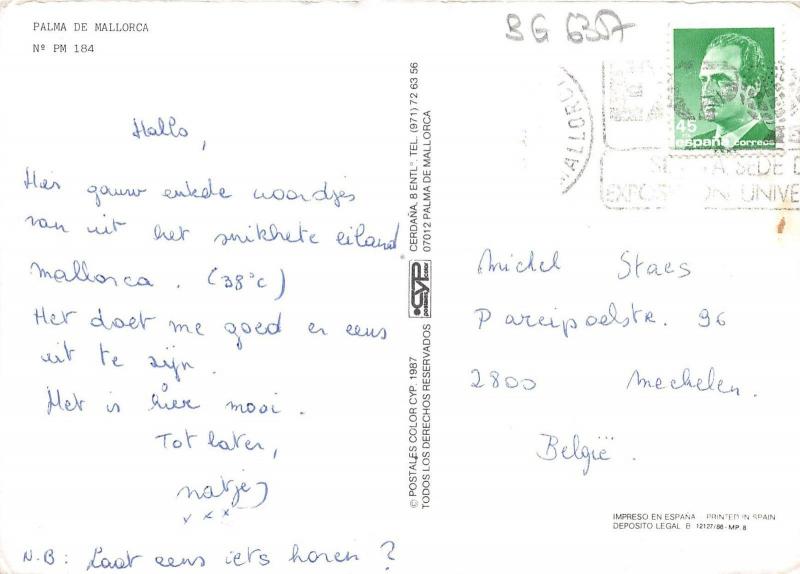 PALMA DE MALLORCA
Nº PM 184
BG 6387
Hallo,
Hier gauw enkele woordjes
van uit het snikhete eiland
Mallorca. (38°C)
Het doet me goed er eens
uit te zijn.
Het is hier mooi.
Tot later,
Natje
x x x
N.B: Laat eens iets horen?
CERDAÑA, 8 ENTLº. TEL. (971) 72 63 56
07012 PALMA DE MALLORCA
CYP
postales color
© POSTALES COLOR CYP, 1987
TODOS LOS DERECHOS RESERVADOS
MALLORCA
45
españa correos
SEVILLA SEDE D
EXPOSICION UNIVE
Michel Staes
Pareipoelstr. 96
2800 Mechelen.
België.
IMPRESO EN ESPAÑA - PRINTED IN SPAIN
DEPOSITO LEGAL B 12127/86 - MP. 8